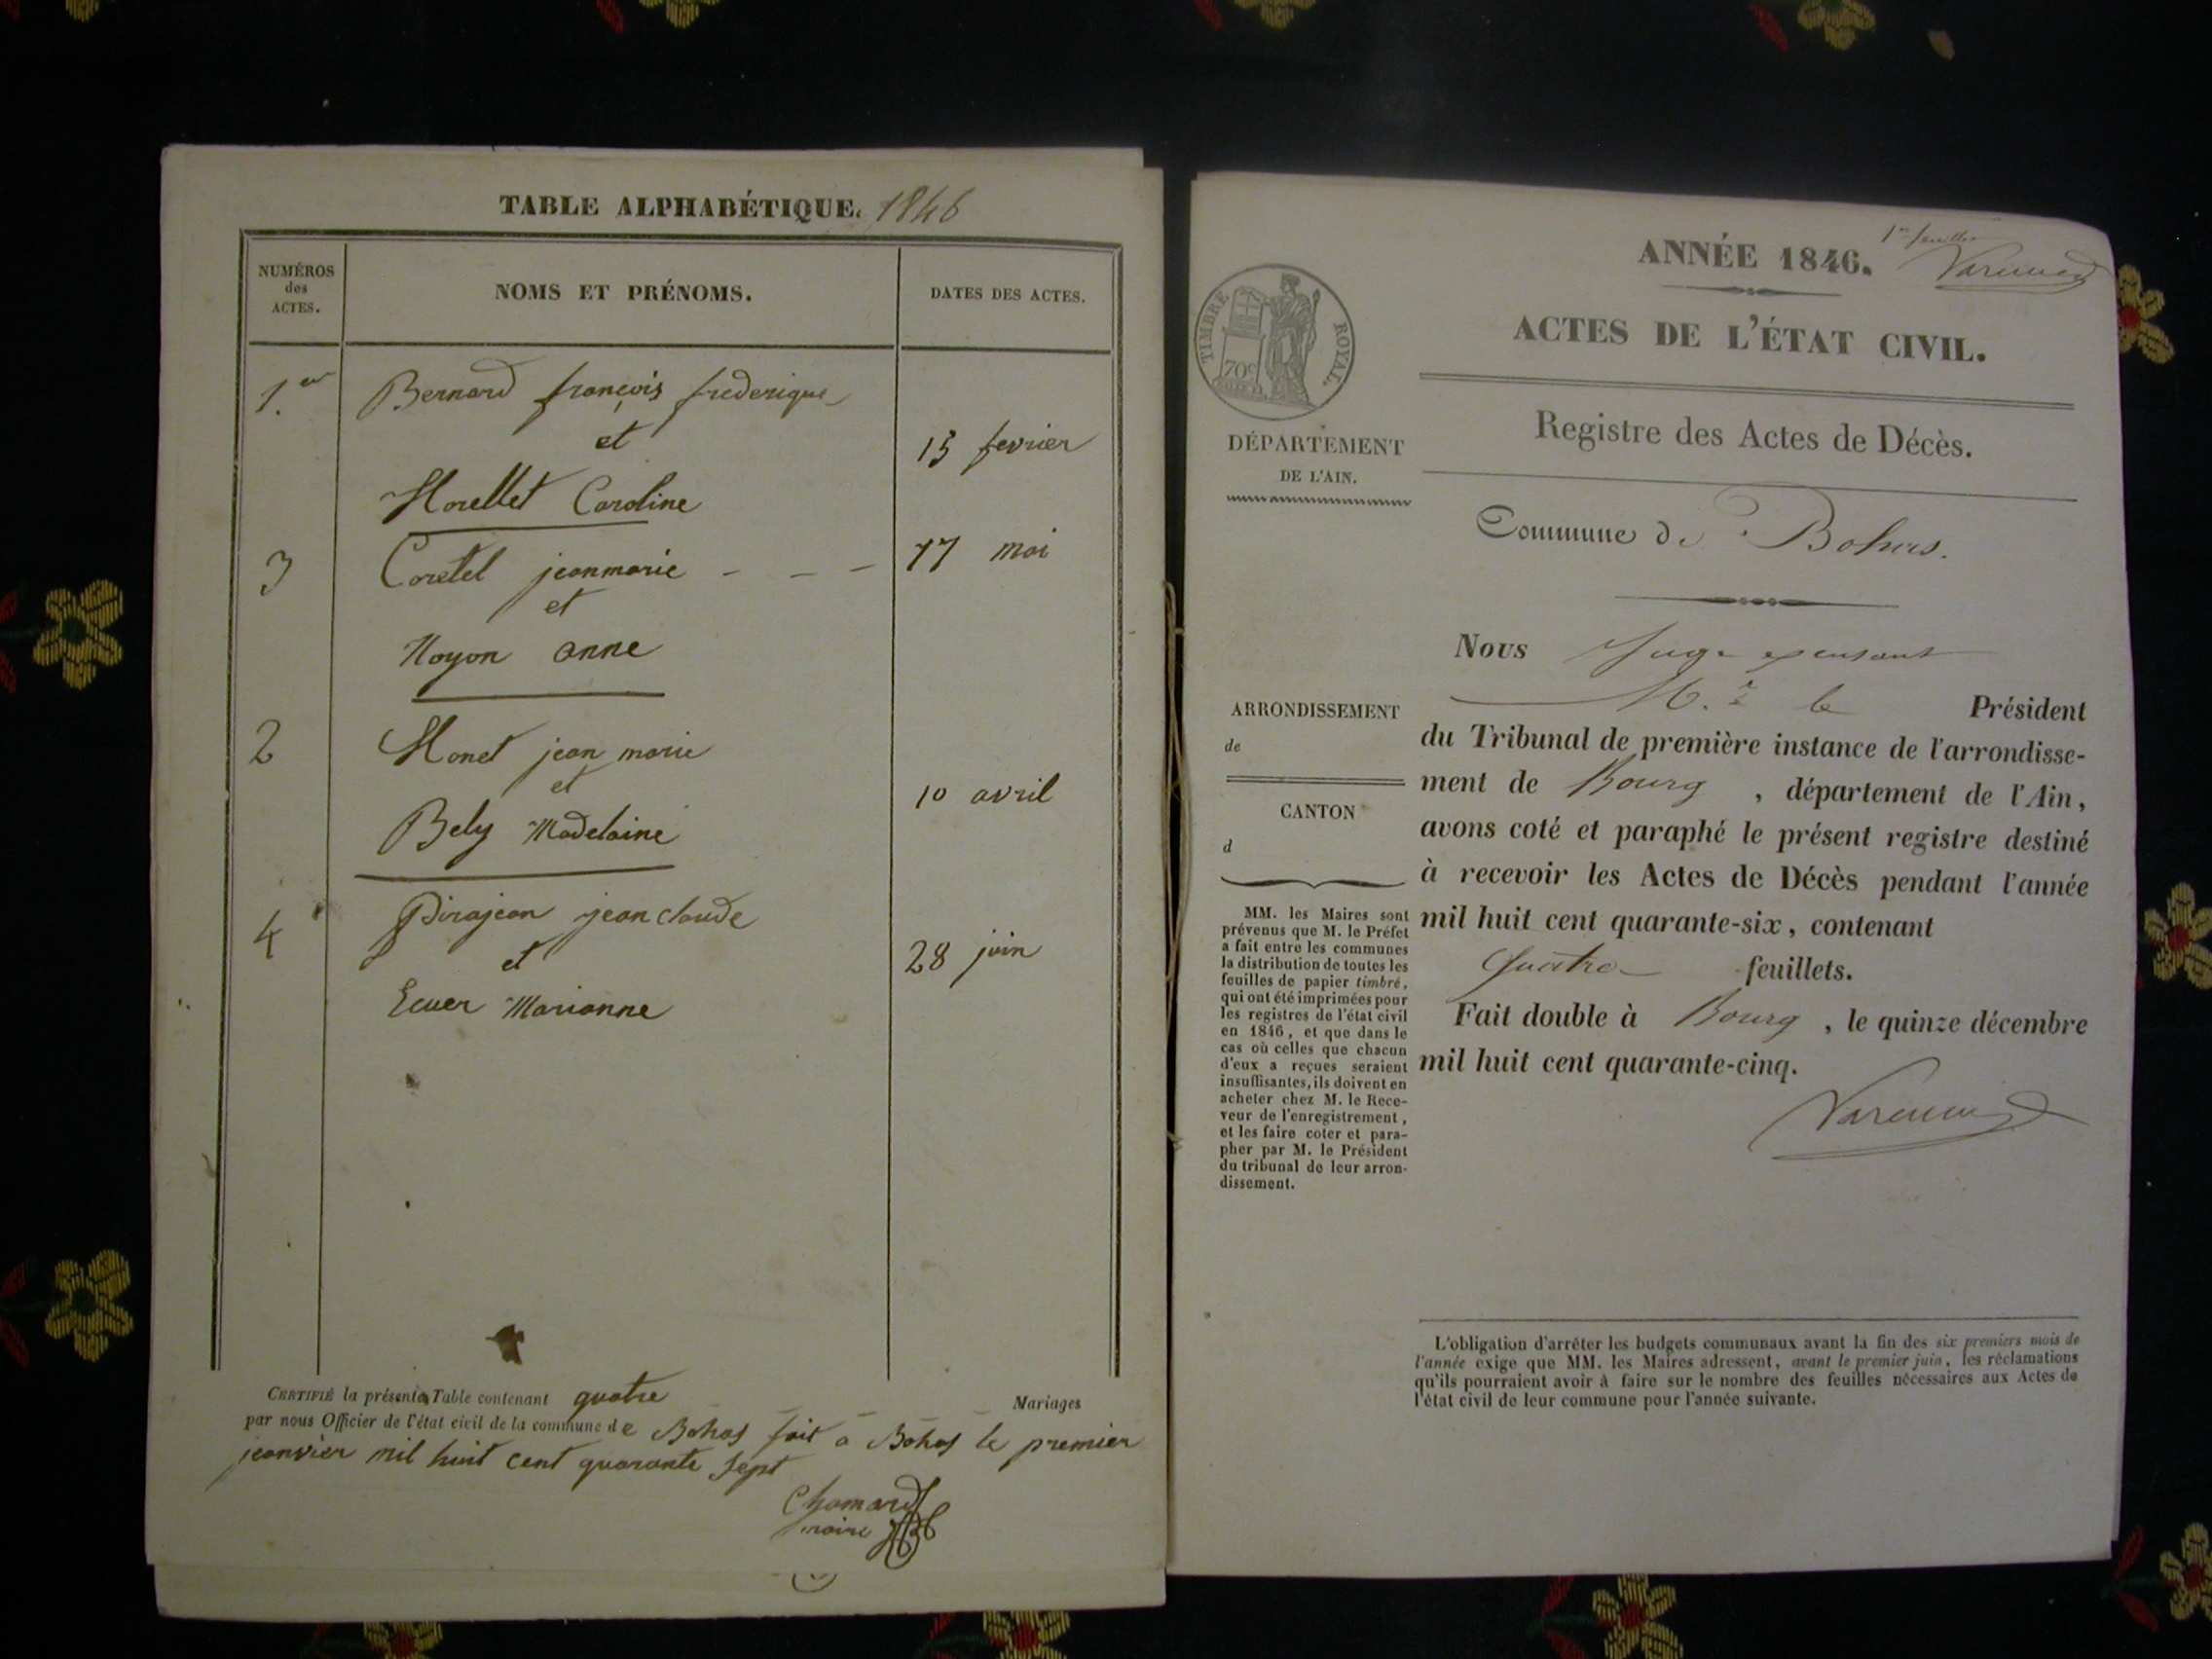 TABLE ALPHABÉTIQUE. 1846
NUMÉROS des ACTES.
NOMS ET PRÉNOMS.
DATES DES ACTES.
1.er Bernard françois frederique
et
15 fevrier
Morellet Caroline
3 Coretel jeanmarie - - - 17 mai
et
Noyon anne
2 Monet jean marie
et
10 avril
Bely Madelaine
4 Pirajean jean claude
et
28 juin
Ecuer Marianne
CERTIFIÉ la présente Table contenant quatre - - - - Mariages
par nous Officier de l'état civil de la commune de Bohas fait a Bohas le premier
jeanvier mil huit cent quarante sept
Chamard
maire
1er feuillet
ANNÉE 1846.
ACTES DE L'ÉTAT CIVIL.
TIMBRE ROYAL.
70c
DÉPARTEMENT
DE L'AIN.
Registre des Actes de Décès.
Commune de Bohas.
Nous Juge
M.r le Président
du Tribunal de première instance de l'arrondisse-
ment de Bourg, département de l'Ain,
avons coté et paraphé le présent registre destiné
à recevoir les Actes de Décès pendant l'année
mil huit cent quarante-six, contenant
quatre feuillets.
Fait double à Bourg, le quinze décembre
mil huit cent quarante-cinq.
ARRONDISSEMENT
de
CANTON
d
MM. les Maires sont
prévenus que M. le Préfet
a fait entre les communes
la distribution de toutes les
feuilles de papier timbré,
qui ont été imprimées pour
les registres de l'état civil
en 1846, et que dans le
cas où celles que chacun
d'eux a reçues seraient
insuffisantes, ils doivent en
acheter chez M. le Rece-
veur de l'enregistrement,
et les faire coter et para-
pher par M. le Président
du tribunal de leur arron-
dissement.
L'obligation d'arrêter les budgets communaux avant la fin des six premiers mois de
l'année exige que MM. les Maires adressent, avant le premier juin, les réclamations
qu'ils pourraient avoir à faire sur le nombre des feuilles nécessaires aux Actes de
l'état civil de leur commune pour l'année suivante.